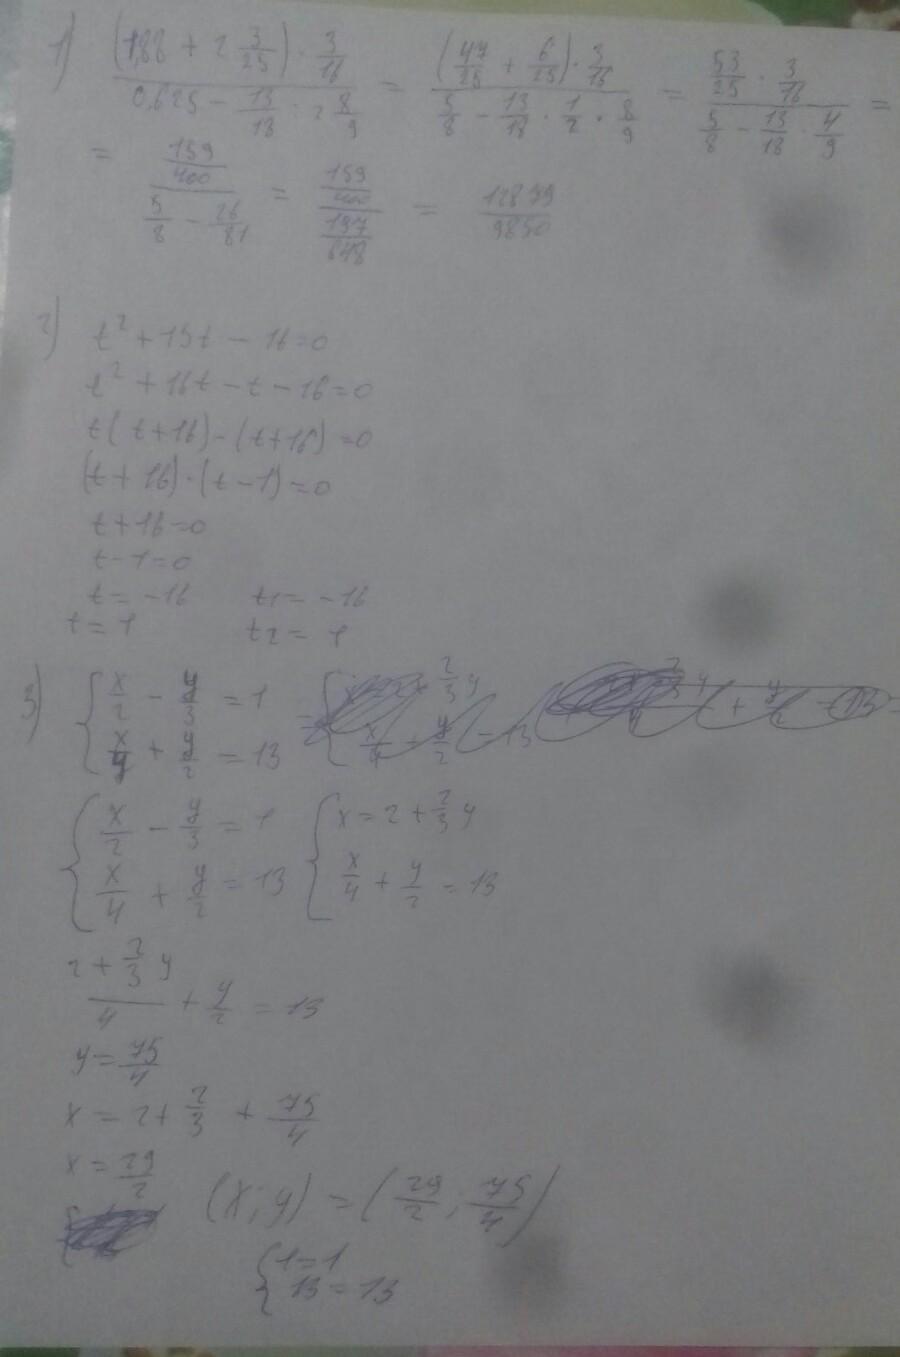 1) ((1,88 + 2 3/25) · 3/16) / (0,625 − 13/18 : 2 8/9) = ((47/25 + 6/25) · 3/16) / (5/8 − 13/18 · 1/2 · 8/9) = (53/25 · 3/16) / (5/8 − 13/18 · 4/9) =
= (159/400) / (5/8 − 26/81) = (159/400) / (197/648) = 12879/9850
2) t² + 15t − 16 = 0
t² + 16t − t − 16 = 0
t(t+16) − (t+16) = 0
(t+16) · (t−1) = 0
t+16=0
t−1=0
t = −16 t1 = −16
t = 1 t2 = 1
3) { x/2 − y/3 = 1 = { 2/3 y
x/4 + y/2 = 13 x/4 + y/2 = 13
{ x/2 − y/3 = 1 { x = 2 + 2/3 y
x/4 + y/2 = 13 x/4 + y/2 = 13
(2 + 2/3 y)/4 + y/2 = 13
y = 75/4
x = 2 + 2/3 + 75/4
x = 29/2
(x; y) = (29/2; 75/4)
{ 1 = 1
13 = 13